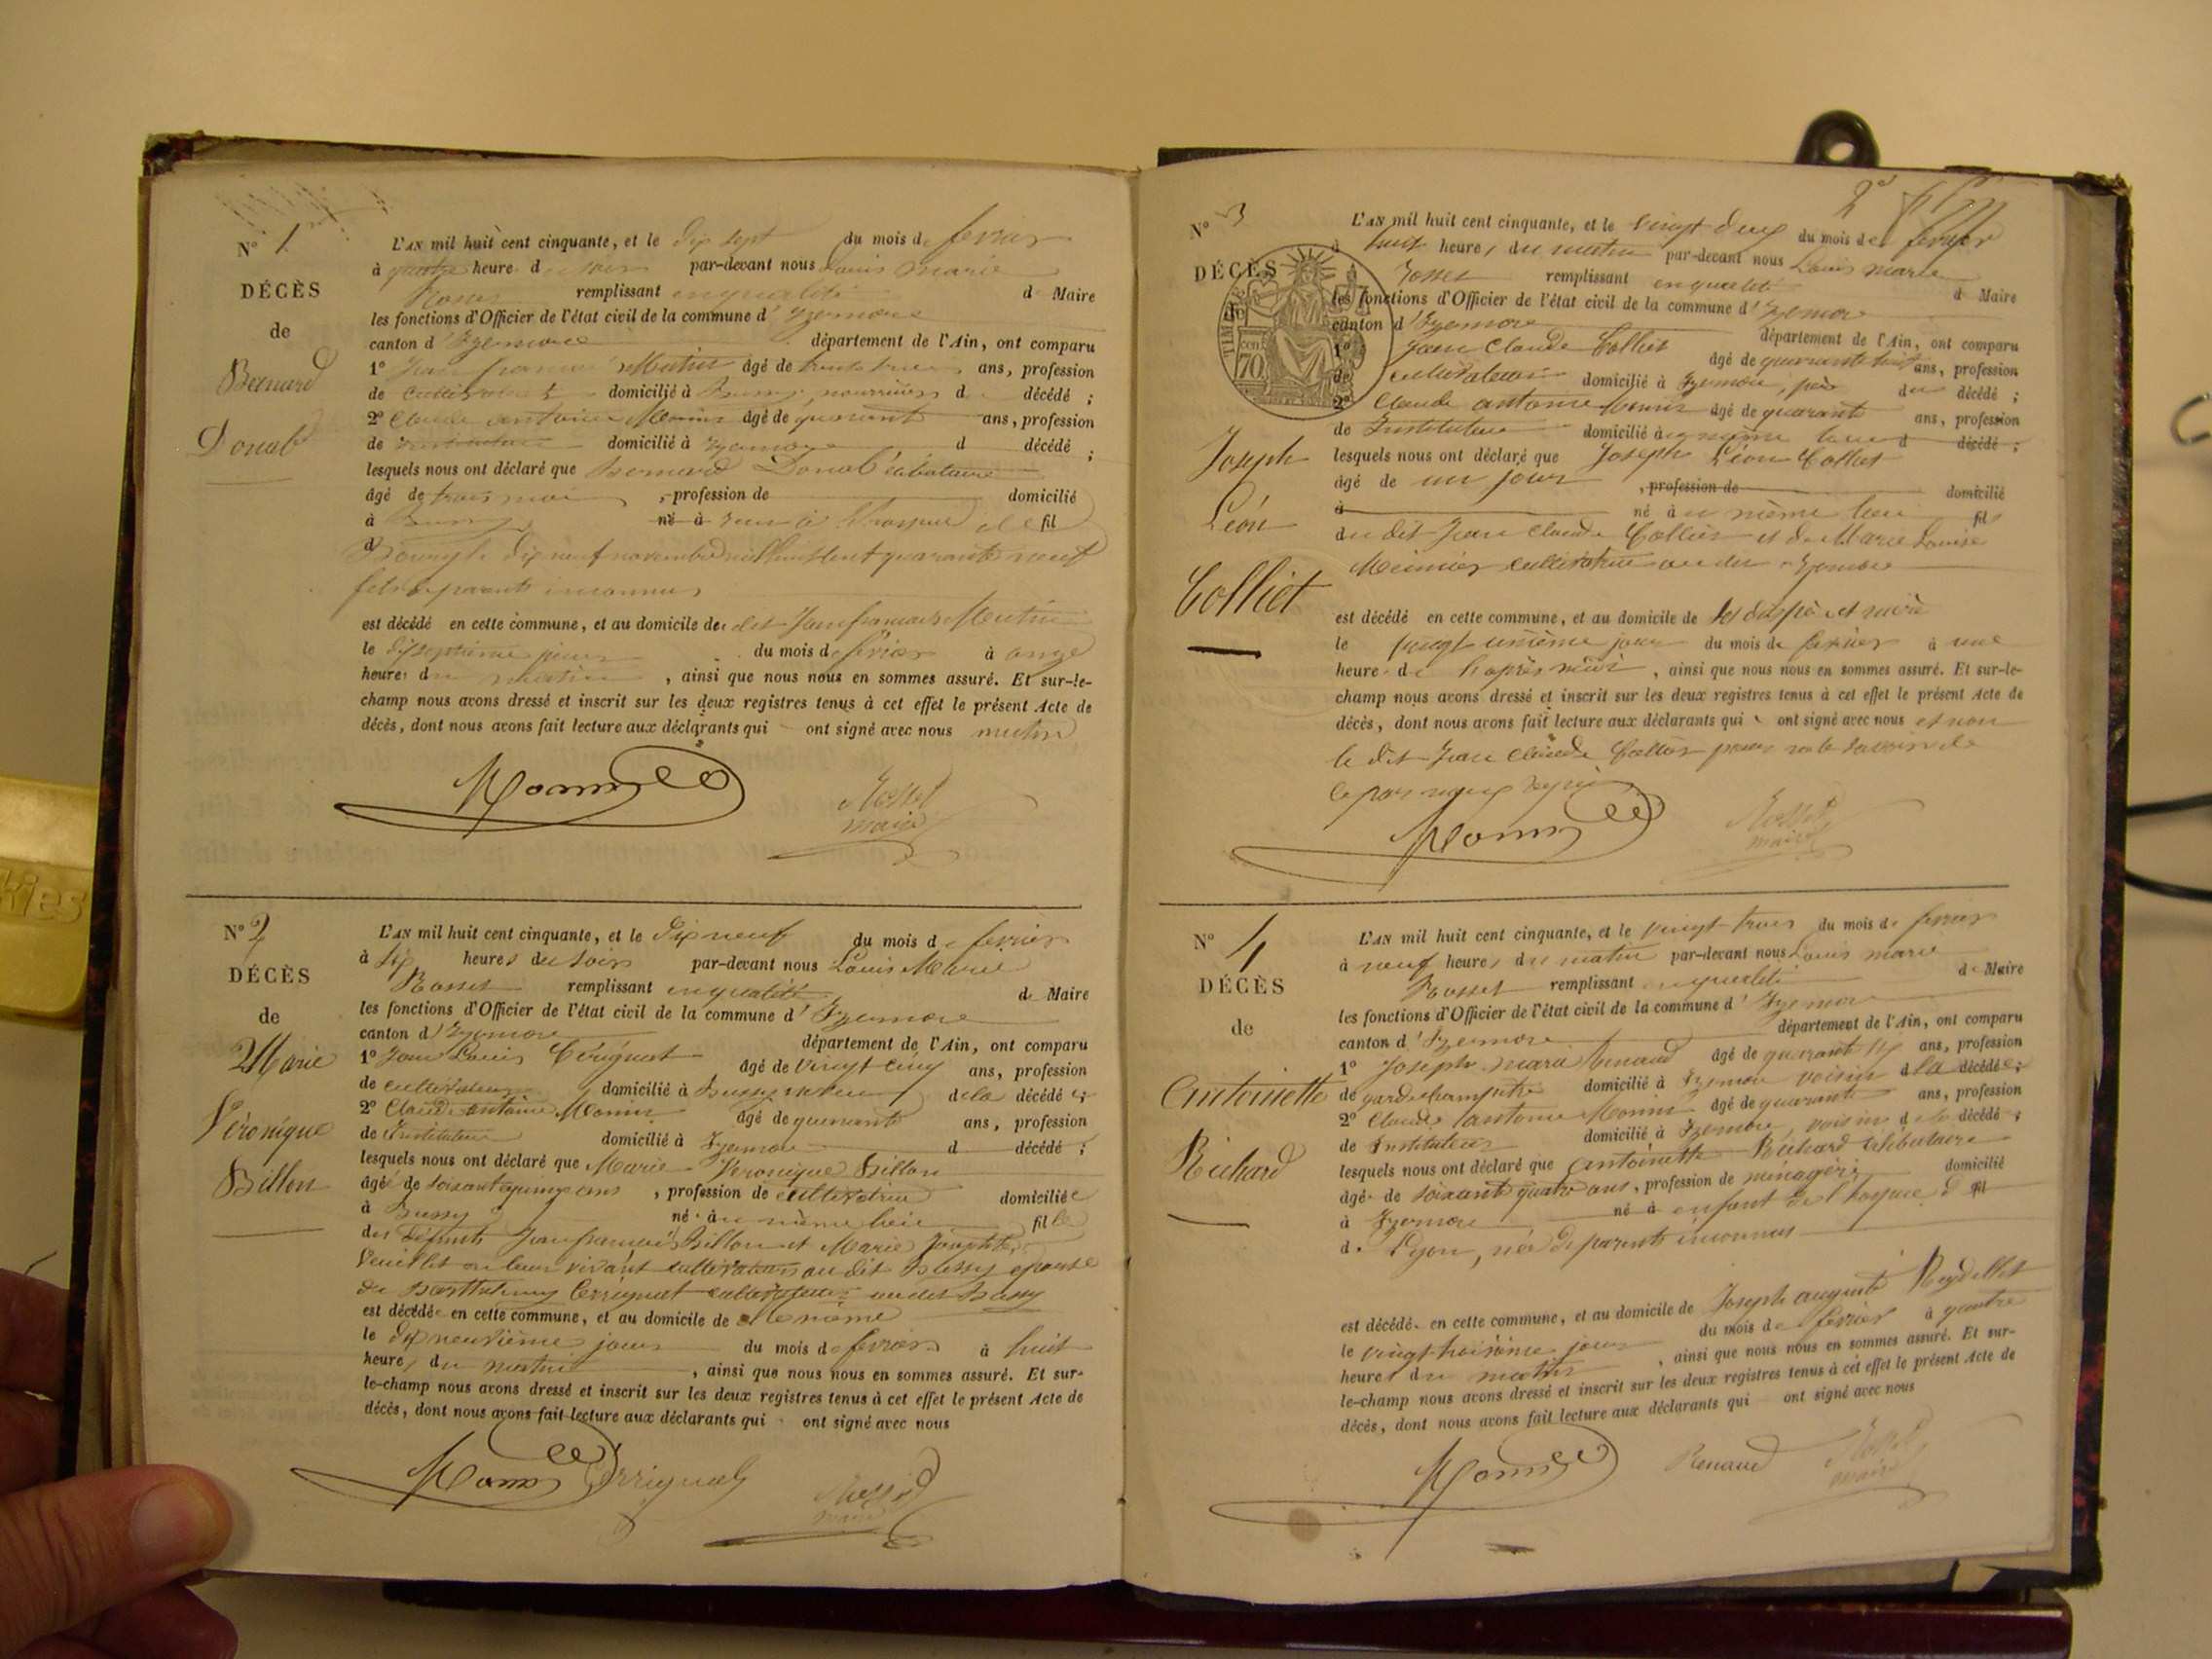 N° 1
DÉCÈS
de
Bernard
Donat
L'AN mil huit cent cinquante, et le dix sept du mois de fevrier
à quatre heure d soir par-devant nous Louis Marie
Rosset remplissant en qualité de Maire
les fonctions d'Officier de l'état civil de la commune d'Izernore
canton d'Izernore département de l'Ain, ont comparu
1° Jean francois Mutin âgé de trente ans, profession
de cultivateur domicilié à Bussy, nourricier d décédé ;
2° Claude antoine Monin âgé de quarante ans, profession
de Instituteur domicilié à Izernore d décédé ;
lesquels nous ont déclaré que Bernard Donat célibataire
âgé de trois mois , profession de domicilié
à Bussy né à à l'hospice de fil
d Bourg le dix neuf novembre mil huit cent quarante neuf
fils de parents inconnus
est décédé en cette commune, et au domicile de du dit Jean francois Mutin
le dix septieme jour du mois de fevrier à onze
heure du matin , ainsi que nous nous en sommes assuré. Et sur-le-
champ nous avons dressé et inscrit sur les deux registres tenus à cet effet le présent Acte de
décès, dont nous avons fait lecture aux déclarants qui ont signé avec nous mutin
Monin
Rosset
maire
N° 2
DÉCÈS
de
Marie
Véronique
Billon
L'AN mil huit cent cinquante, et le dix neuf du mois de fevrier
à six heures du soir par-devant nous Louis Marie
Rosset remplissant en qualité de Maire
les fonctions d'Officier de l'état civil de la commune d'Izernore
canton d'Izernore département de l'Ain, ont comparu
1° Jean Louis âgé de vingt cinq ans, profession
de cultivateur domicilié à Bussy neveu de la décédée ;
2° Claude antoine Monin âgé de quarante ans, profession
de Instituteur domicilié à Izernore d décédé ;
lesquels nous ont déclaré que Marie Veronique Billon
âgé de soixante quinze ans , profession de cultivatrice domiciliée
à Bussy né au même lieu fille
des défunts Jean francois Billon et Marie Josephte
Veuillet en leur vivant cultivateurs au dit Bussy epouse
de Barthelemy cultivateur au dit Bussy
est décédé en cette commune, et au domicile de elle même
le dix neuvième jour du mois de fevrier à huit
heures du matin , ainsi que nous nous en sommes assuré. Et sur-
le-champ nous avons dressé et inscrit sur les deux registres tenus à cet effet le présent Acte de
décès, dont nous avons fait lecture aux déclarants qui ont signé avec nous
Monin
Rosset
maire
2e
N° 3
DÉCÈS
de
TIMBRE
70
Joseph
Léon
Colliet
L'AN mil huit cent cinquante, et le vingt deux du mois de fevrier
à huit heures du matin par-devant nous Louis marie
Rosset remplissant en qualité de Maire
les fonctions d'Officier de l'état civil de la commune d'Izernore
canton d'Izernore département de l'Ain, ont comparu
1° Jean Claude Colliet âgé de quarante huit ans, profession
de cultivateur domicilié à Izernore, père du décédé ;
2° Claude antoine Monin âgé de quarante ans, profession
de Instituteur domicilié à même lieu d décédé ;
lesquels nous ont déclaré que Joseph Léon Colliet
âgé de un jour , profession de domicilié
à né à u même lieu fils
du dit Jean Claude Colliet et de Marie Louise
Meunier cultivatrice au dit Izernore
est décédé en cette commune, et au domicile de ses dits père et mère
le vingt unième jour du mois de fevrier à une
heure de l'après midi , ainsi que nous nous en sommes assuré. Et sur-le-
champ nous avons dressé et inscrit sur les deux registres tenus à cet effet le présent Acte de
décès, dont nous avons fait lecture aux déclarants qui ont signé avec nous et non
le dit Jean Claude Colliet pour ne le savoir de
ce par nous requis
Monin
Rosset
maire
N° 4
DÉCÈS
de
Antoinette
Richard
L'AN mil huit cent cinquante, et le vingt trois du mois de fevrier
à neuf heures du matin par-devant nous Louis marie
Rosset remplissant en qualité de Maire
les fonctions d'Officier de l'état civil de la commune d'Izernore
canton d'Izernore département de l'Ain, ont comparu
1° Joseph marie Renaud âgé de quarante six ans, profession
de garde champêtre domicilié à Izernore voisin de la décédée ;
2° Claude antoine Monin âgé de quarante ans, profession
de Instituteur domicilié à Izernore, voisin de la décédé ;
lesquels nous ont déclaré que antoinette Richard célibataire
âgé de soixante quatre ans, profession de ménagère domicilié
à Izernore né à enfant de l'hospice d fil
d. Lyon, née de parents inconnus
est décédé en cette commune, et au domicile de Joseph auguste Reydellet
le vingt troisième jour du mois de fevrier à quatre
heures du matin , ainsi que nous nous en sommes assuré. Et sur-
le-champ nous avons dressé et inscrit sur les deux registres tenus à cet effet le présent Acte de
décès, dont nous avons fait lecture aux déclarants qui ont signé avec nous
Monin
Renaud
Rosset
maire